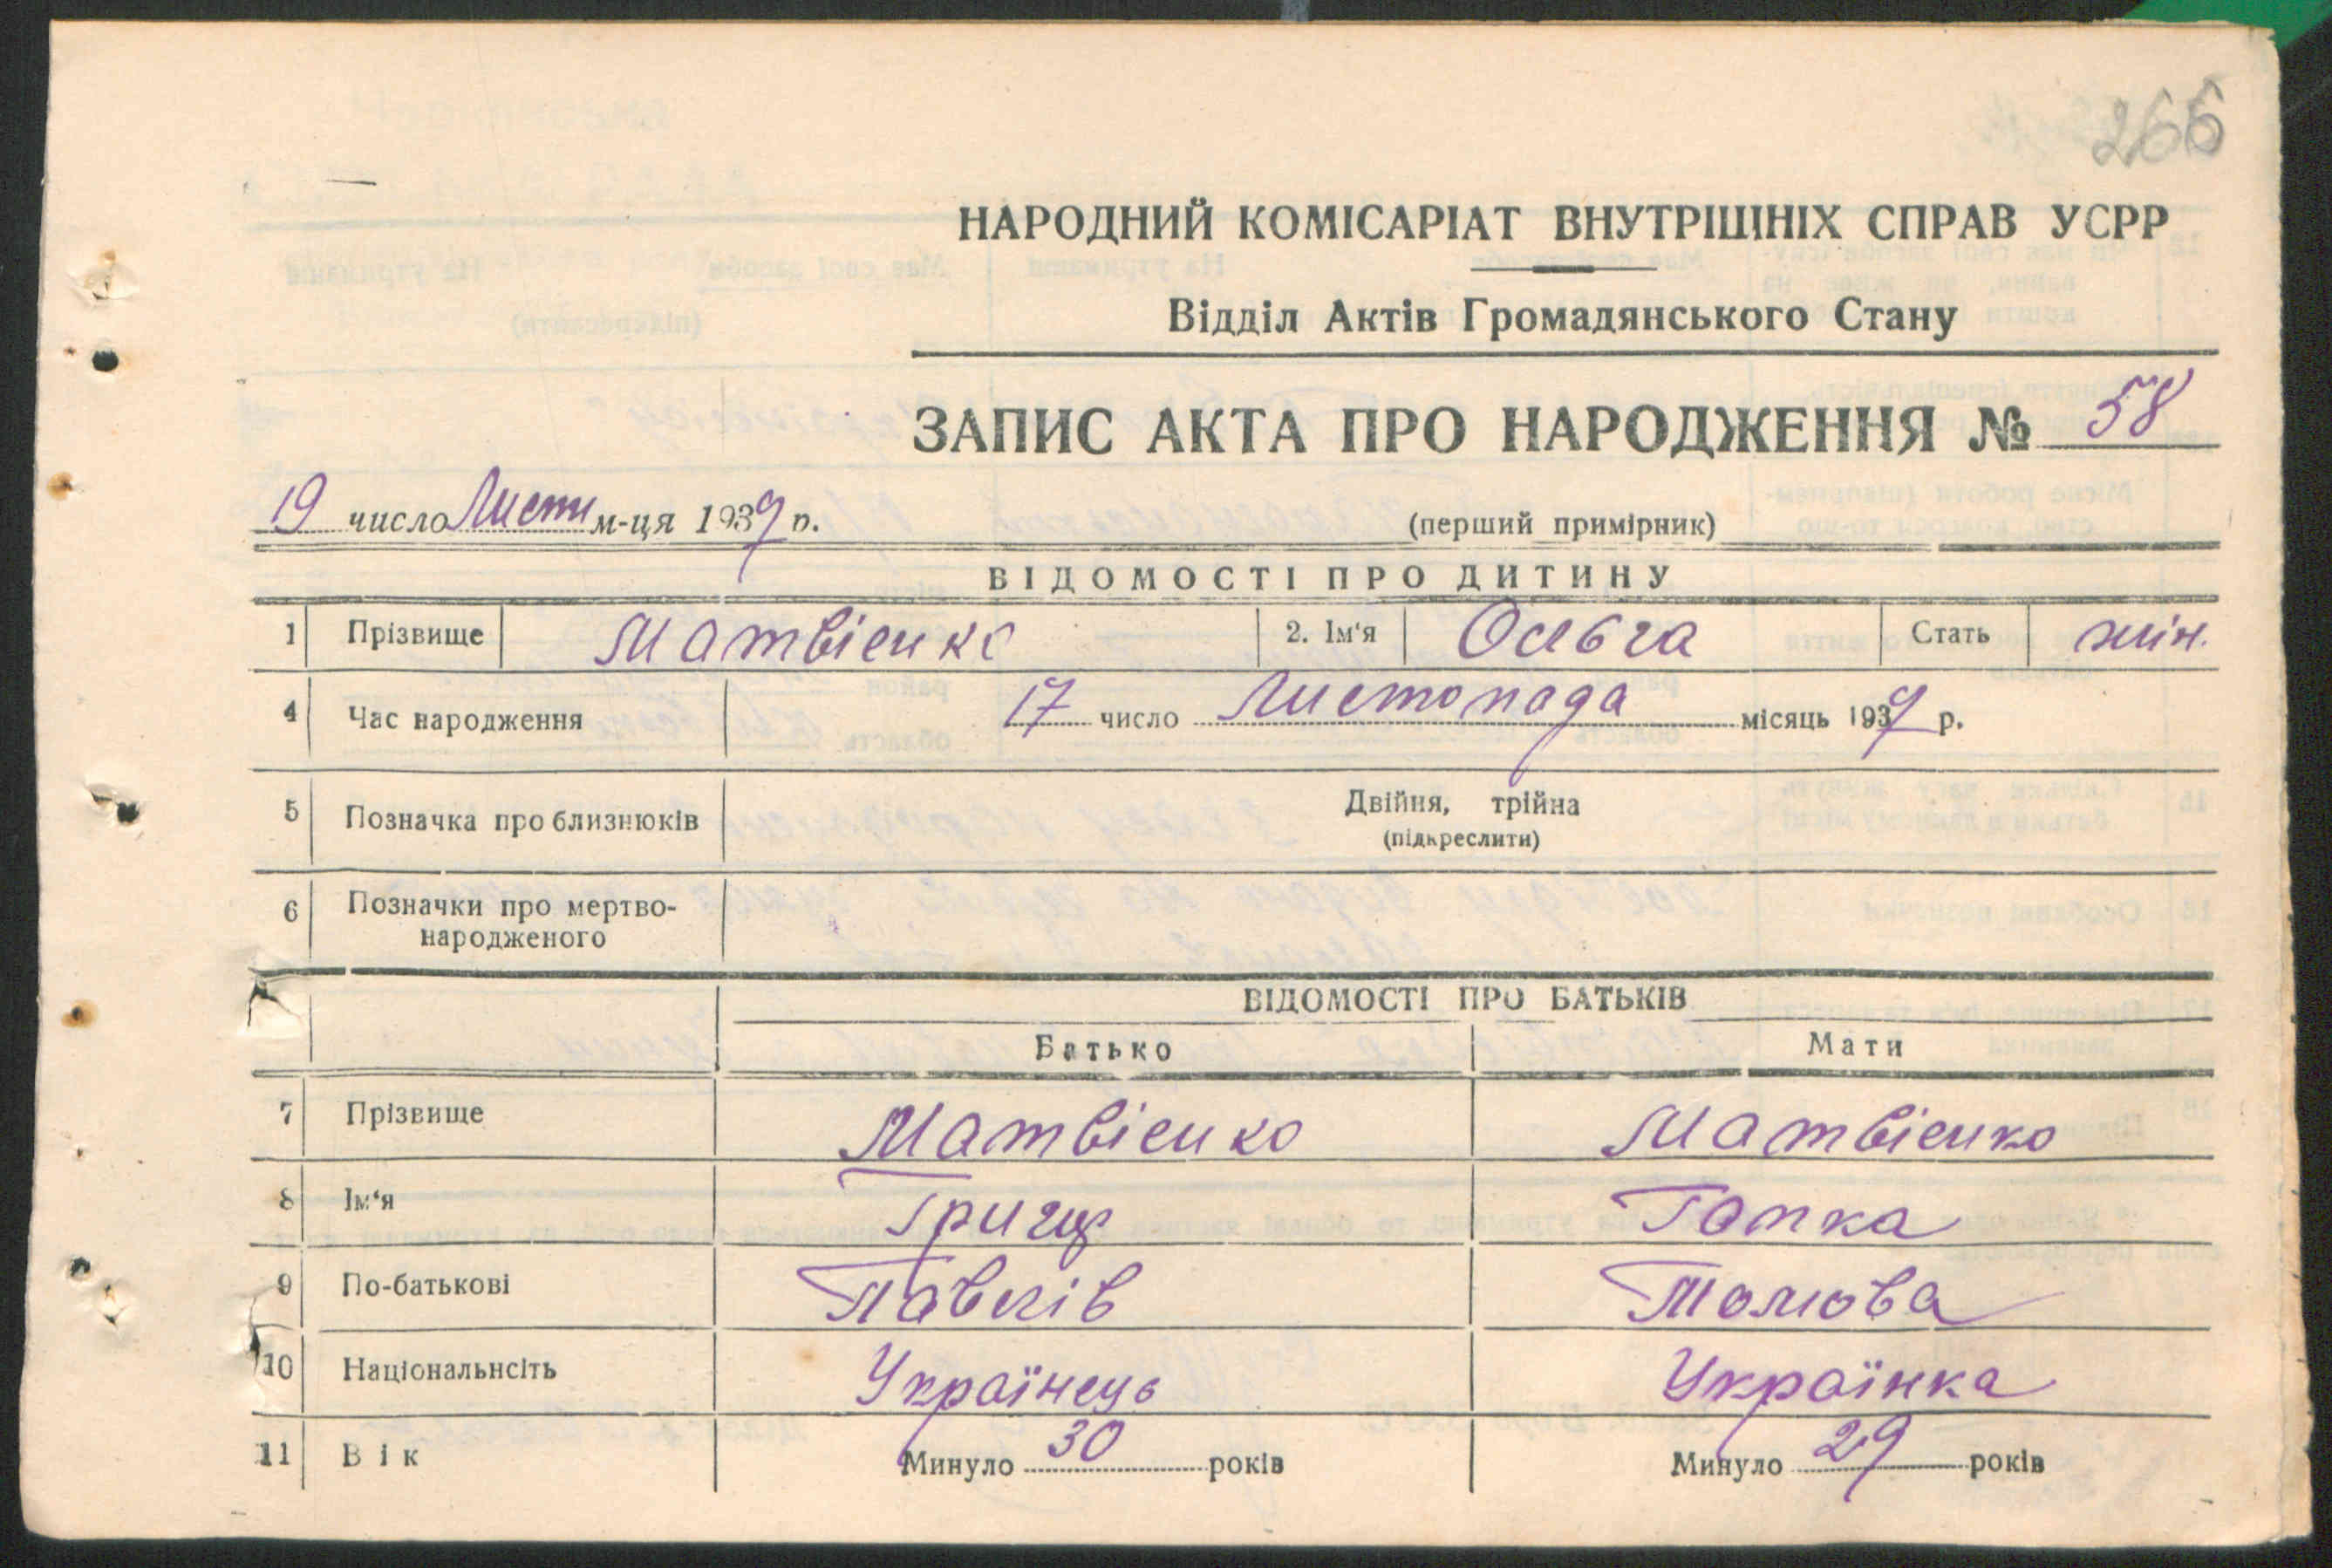 266
НАРОДНИЙ КОМІСАРІАТ ВНУТРІШНІХ СПРАВ УСРР
Відділ Актів Громадянського Стану
ЗАПИС АКТА ПРО НАРОДЖЕННЯ № 58
19 число Листп м-ця 1939 р.
(перший примірник)
ВІДОМОСТІ ПРО ДИТИНУ
1 Прізвище Матвієнко 2. Ім'я Ольга Стать жін.
4 Час народження 17 число Листопада місяць 1939 р.
5 Позначка про близнюків Двійня, трійна
(підкреслити)
6 Позначки про мертво-
народженого
ВІДОМОСТІ ПРО БАТЬКІВ
Батько Мати
7 Прізвище Матвієнко Матвієнко
8 Ім'я Гриць Гапка
9 По-батькові Павлів
10 Національнсіть Українець Українка
11 Вік Минуло 30 років Минуло 29 років